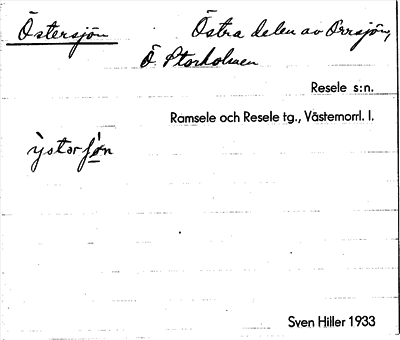 Östersjön Östra delen av Orrsjön,
Ö Storholmen
Resele s:n.
Ramsele och Resele tg., Västernorrl. l.
Sven Hiller 1933